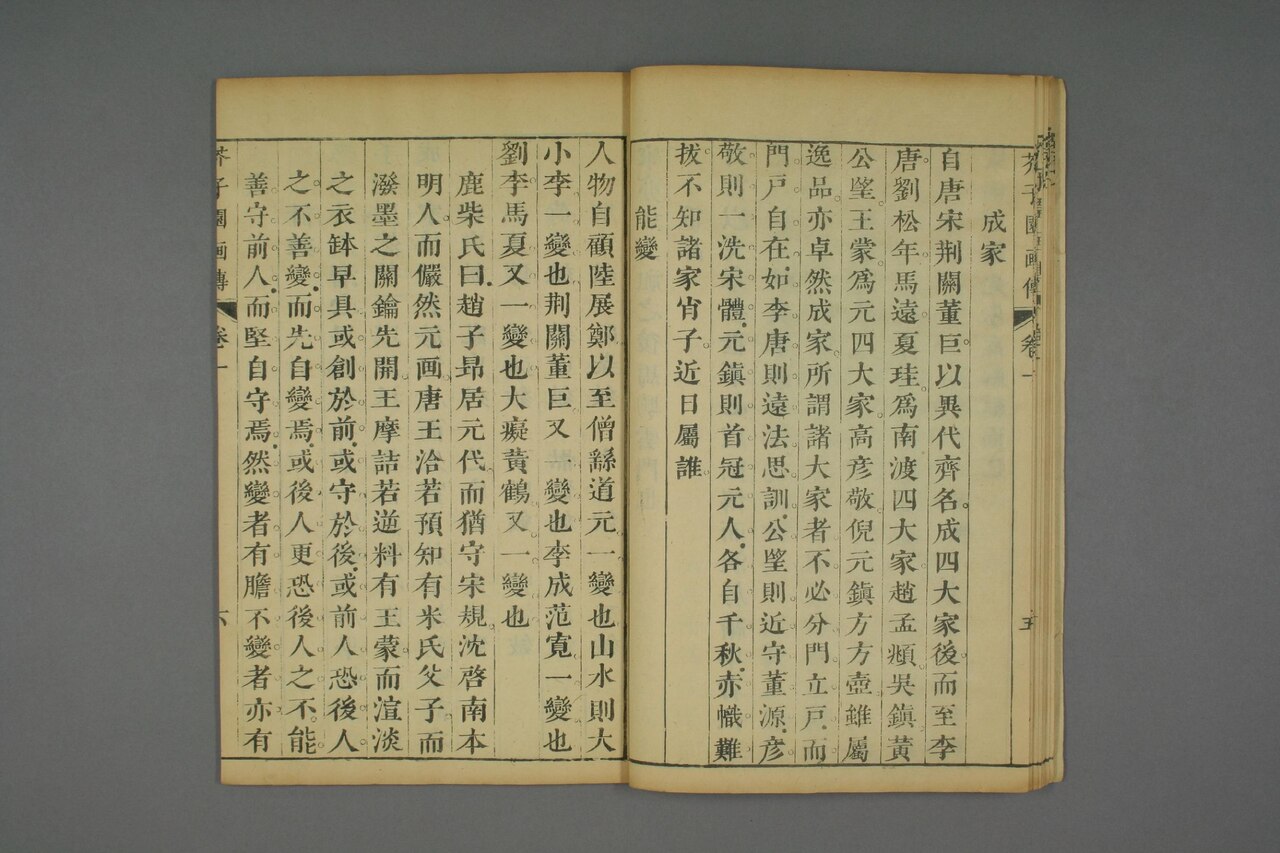 芥子園画傳 卷一 五
成家
自唐宋荆關董巨。以異代齊名。成四大家。後而至李
唐劉松年馬遠夏珪。爲南渡四大家。趙孟頫吳鎮黃
公望王蒙。爲元四大家。高彥敬倪元鎮方方壺。雖屬
逸品。亦卓然成家。所謂諸大家者。不必分門立戶。而
門戶自在。如李唐則遠法思訓。公望則近守董源。彥
敬則一洗宋體。元鎮則首冠元人。各自千秋。赤幟難
拔。不知諸家肖子。近日屬誰。
能變
人物自顧陸展鄭以至僧繇道元。一變也。山水則大
小李。一變也。荆關董巨。又一變也。李成范寬。一變也。
劉李馬夏。又一變也。大癡黃鶴。又一變也
鹿柴氏曰。趙子昂居元代。而猶守宋規。沈啓南本
明人。而儼然元画。唐王洽若預知有米氏父子。而
潑墨之關鑰先開。王摩詰若逆料有王蒙。而渲淡
之衣鉢早具。或創於前。或守於後。或前人恐後人
之不善變。而先自變焉。或後人更恐後人之不能
善守前人。而堅自守焉。然變者有膽。不變者亦有
芥子園画傳 卷一 六